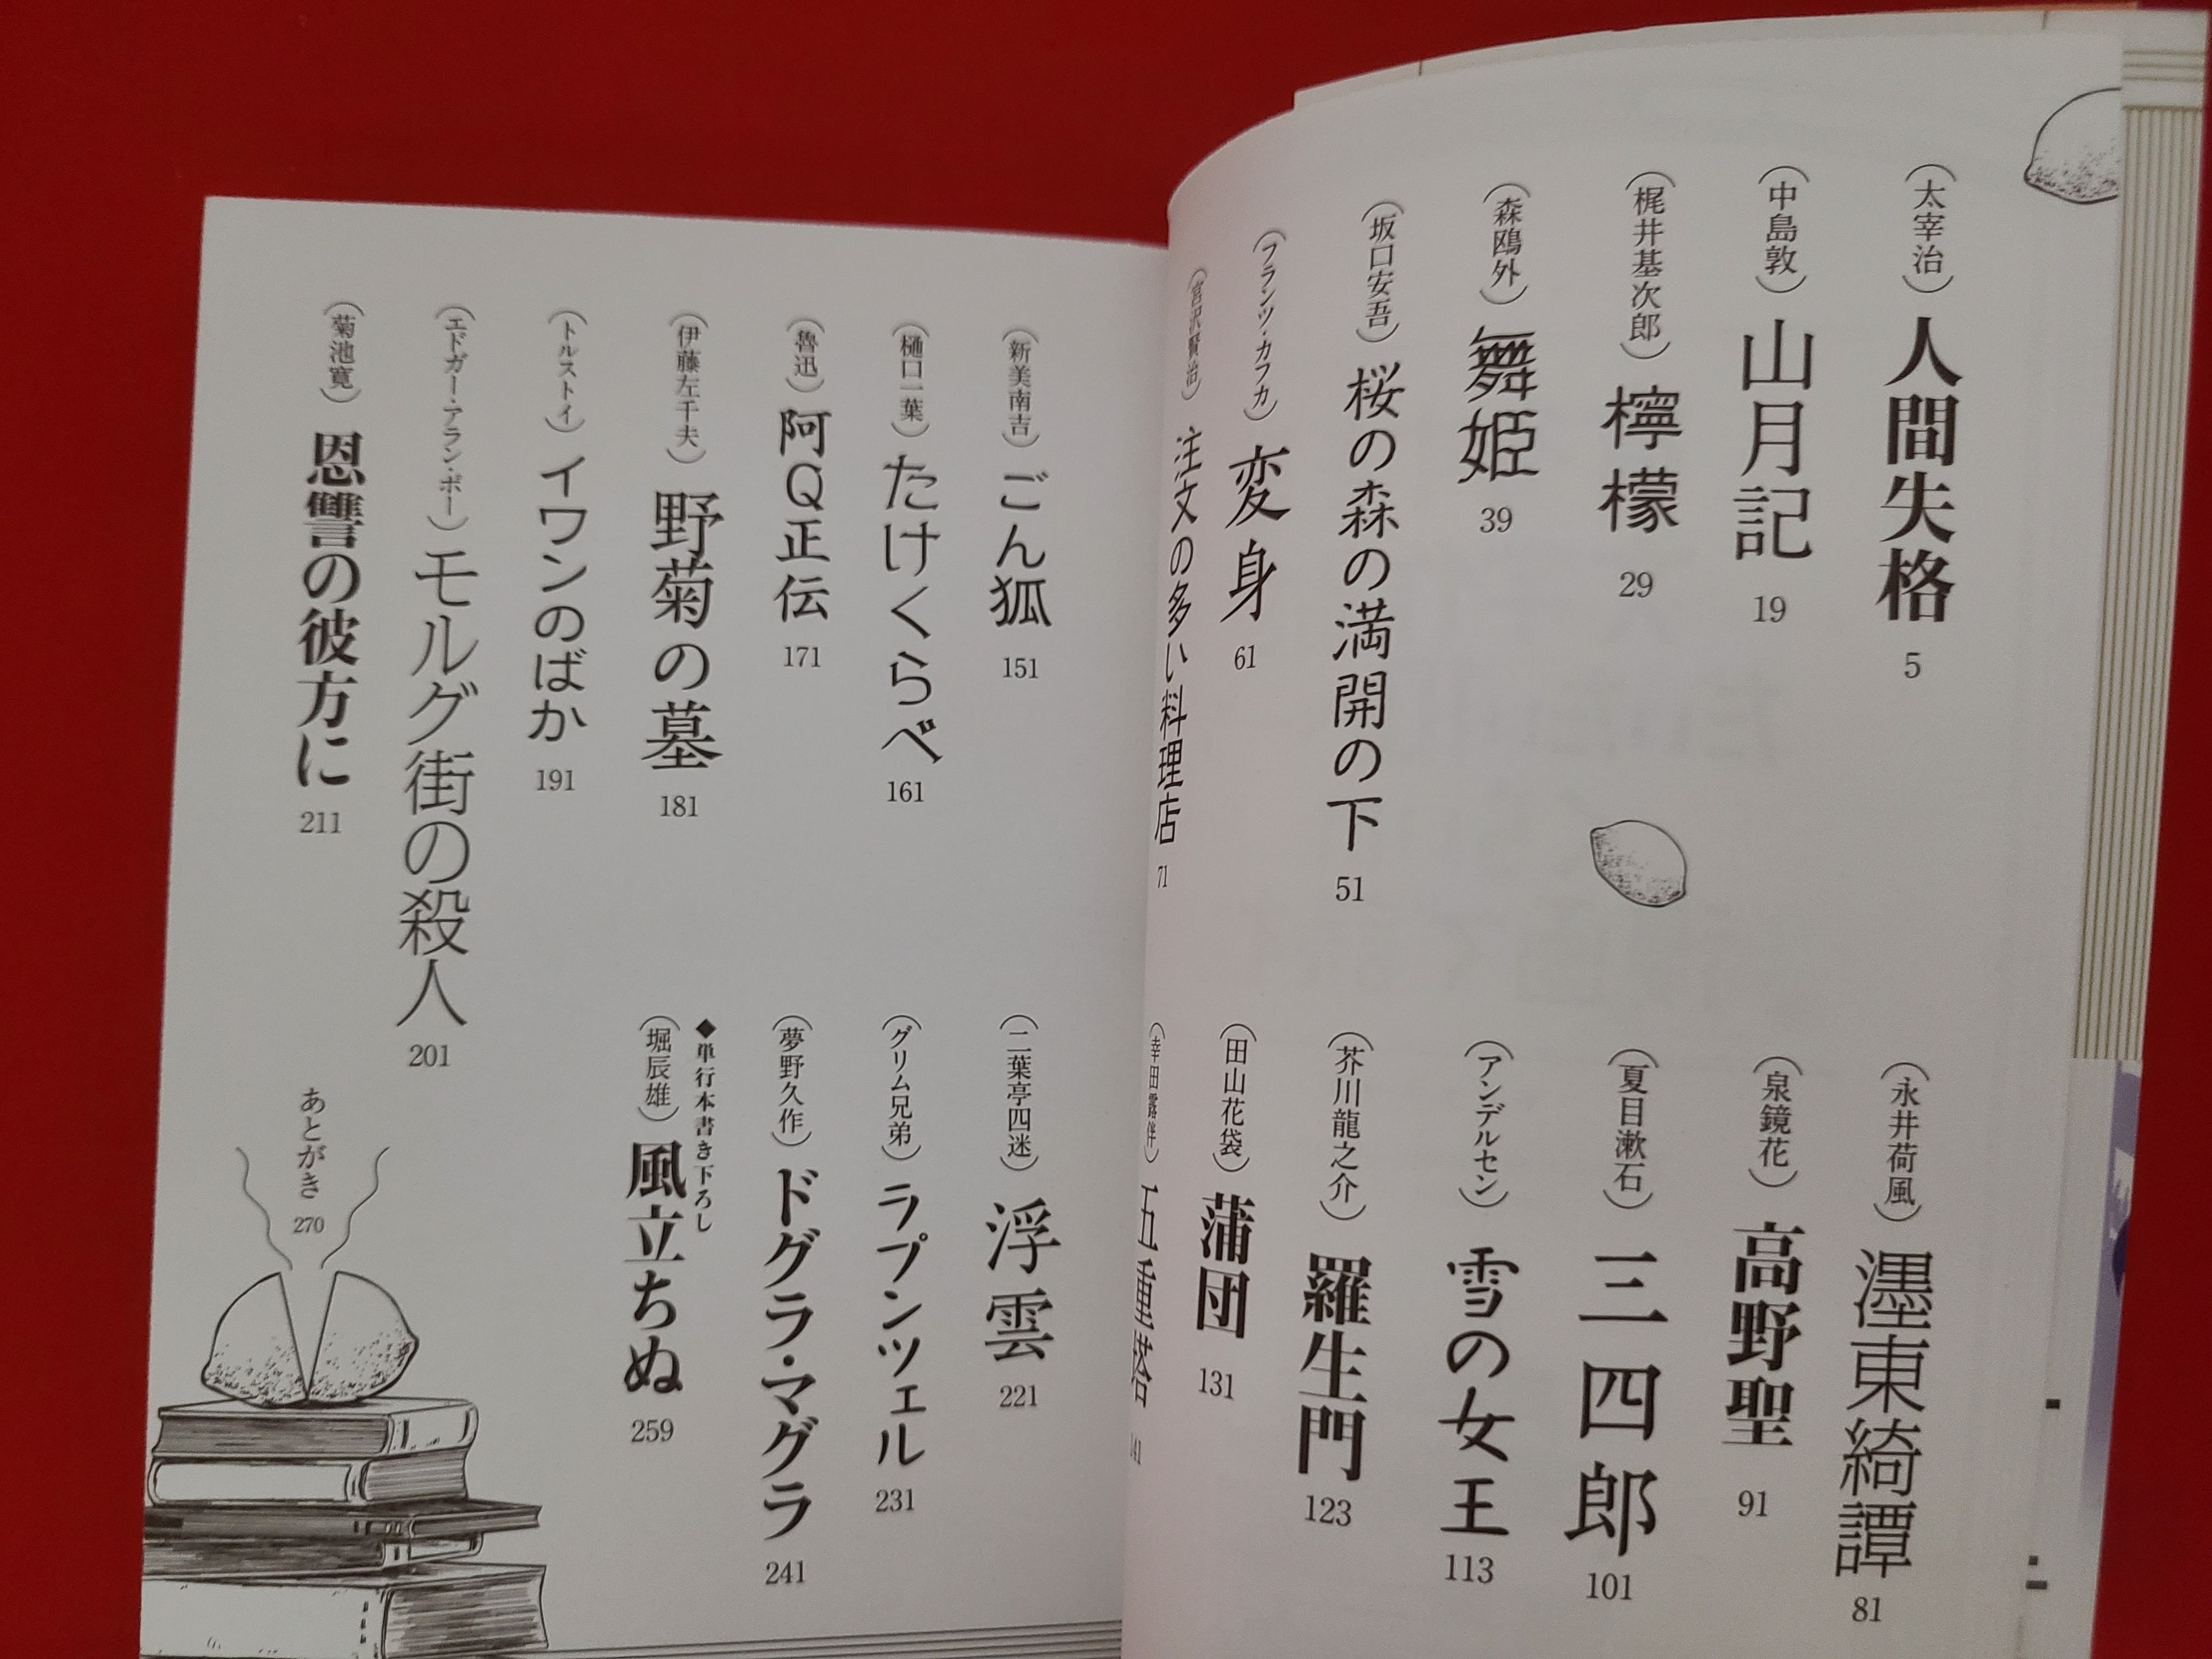 （太宰治）人間失格 5
（中島敦）山月記 19
（梶井基次郎）檸檬 29
（森鴎外）舞姫 39
（坂口安吾）桜の森の満開の下 51
（フランツ・カフカ）変身 61
（宮沢賢治）注文の多い料理店 71
（永井荷風）濹東綺譚 81
（泉鏡花）高野聖 91
（夏目漱石）三四郎 101
（アンデルセン）雪の女王 113
（芥川龍之介）羅生門 123
（田山花袋）蒲団 131
（幸田露伴）五重塔 141
（新美南吉）ごん狐 151
（樋口一葉）たけくらべ 161
（魯迅）阿Q正伝 171
（伊藤左千夫）野菊の墓 181
（トルストイ）イワンのばか 191
（エドガー・アラン・ポー）モルグ街の殺人 201
（菊池寛）恩讐の彼方に 211
（二葉亭四迷）浮雲 221
（グリム兄弟）ラプンツェル 231
（夢野久作）ドグラ・マグラ 241
◆単行本書き下ろし
（堀辰雄）風立ちぬ 259
あとがき 270